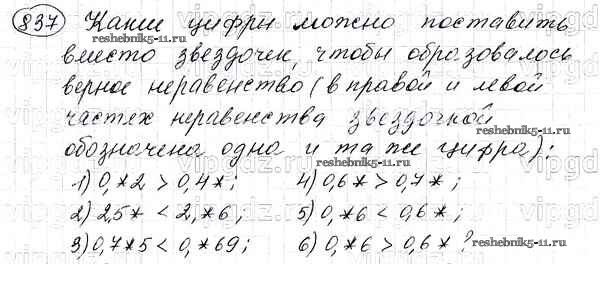 837 Какие цифры можно поставить
вместо звездочек, чтобы образовалось
верное неравенство (в правой и левой
частях неравенства звездочкой
обозначена одна и та же цифра):
1) 0,*2 > 0,4*; 4) 0,6* > 0,7*;
2) 2,5* < 2,*6; 5) 0,*6 < 0,6*;
3) 0,7*5 < 0,*69; 6) 0,*6 > 0,6*?
reshebnik5-11.ru
reshebnik5-11.ru
reshebnik5-11.ru
reshebnik5-11.ru
reshebnik5-11.ru